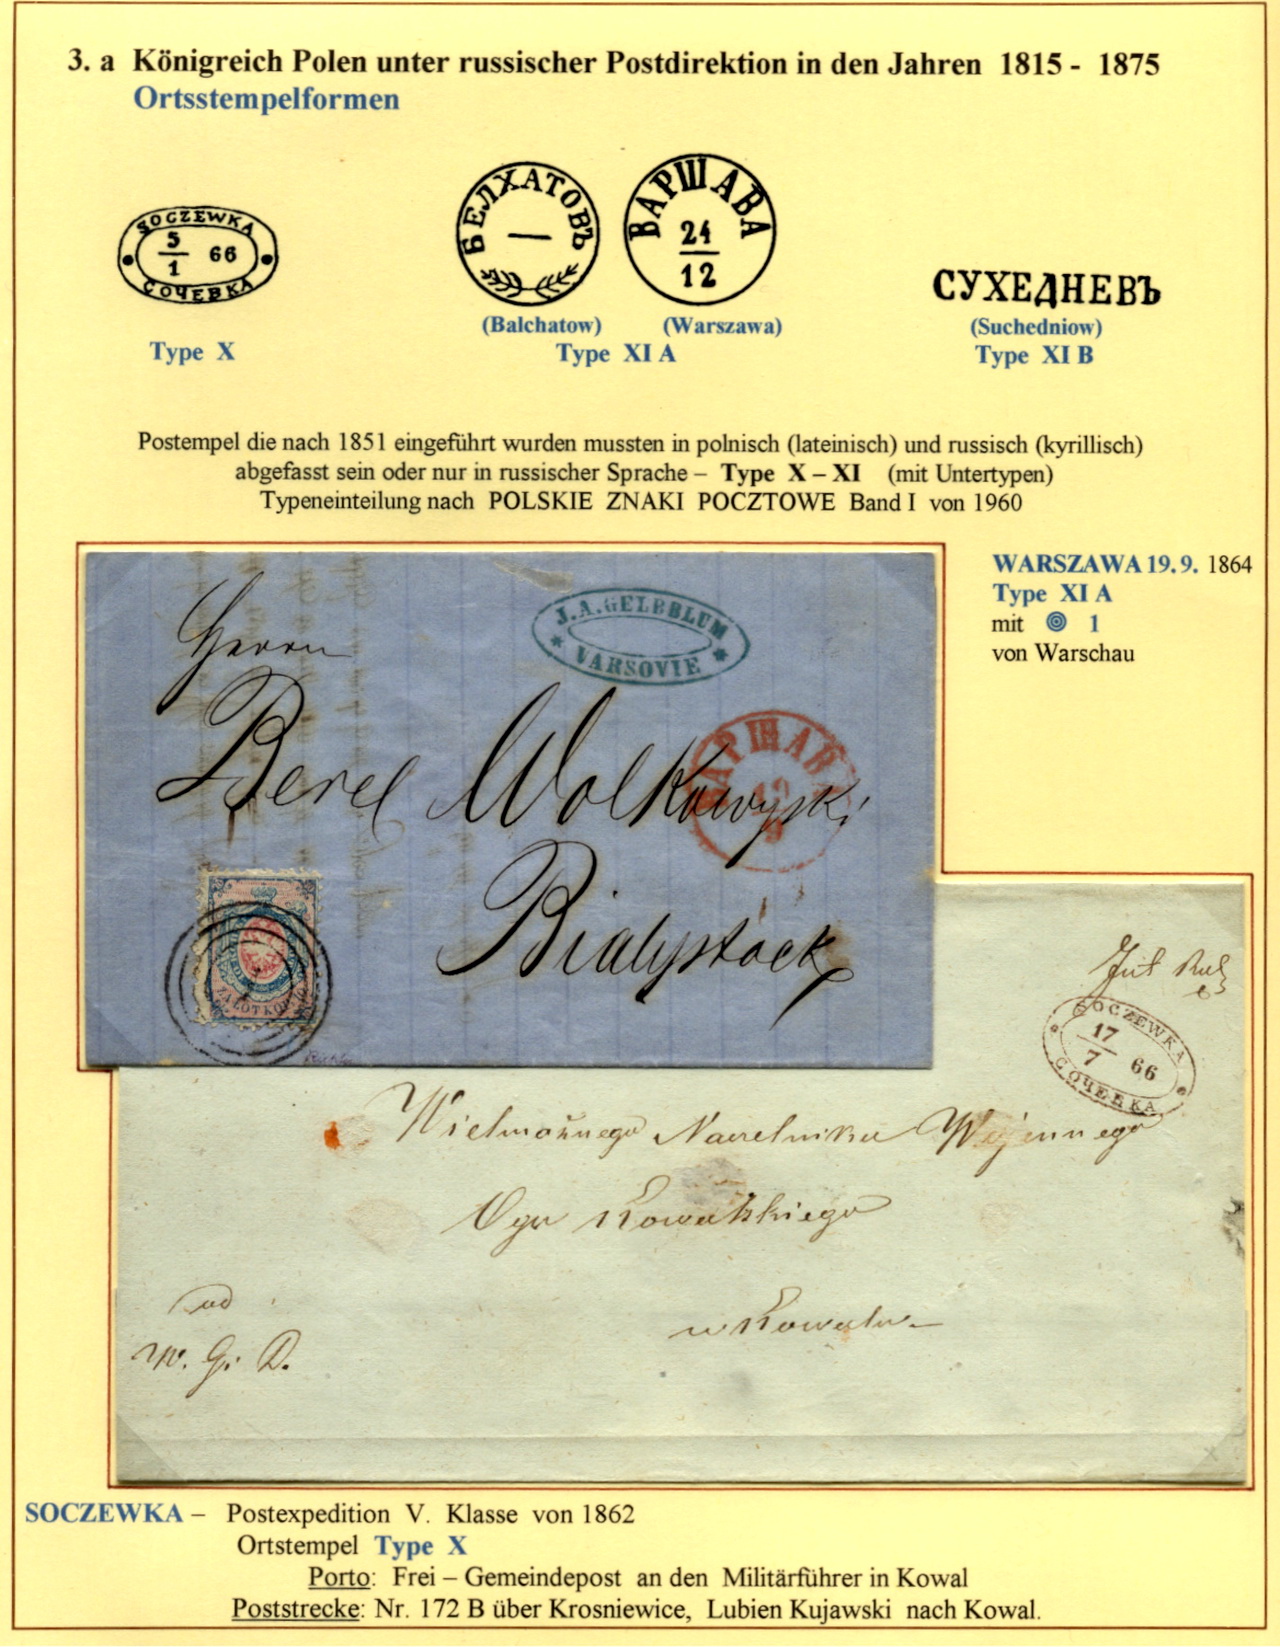 3. a Königreich Polen unter russischer Postdirektion in den Jahren 1815 - 1875
Ortsstempelformen
SOCZEWKA
5
1
66
СОЧЕВКА
Type X
БЕЛХАТОВЪ
ВАРШАВА
24
12
(Balchatow) (Warszawa)
Type XI A
СУХЕДНЕВЪ
(Suchedniow)
Type XI B
Postempel die nach 1851 eingeführt wurden mussten in polnisch (lateinisch) und russisch (kyrillisch)
abgefasst sein oder nur in russischer Sprache – Type X – XI (mit Untertypen)
Typeneinteilung nach POLSKIE ZNAKI POCZTOWE Band I von 1960
WARSZAWA 19. 9. 1864
Type XI A
mit 1
von Warschau
J.A.GELBBLUM
* VARSOVIE *
Herrn
Berel Wolkowyski
Bialystock
ВАРШАВА
19
9
ZA LOT KOP. 10
SOCZEWKA
17
7
66
СОЧЕВКА
Wielmożnego Naczelnika Wojennego
Ogu Kowalskiego
w Kowalu
od
W. G. D.
SOCZEWKA – Postexpedition V. Klasse von 1862
Ortstempel Type X
Porto: Frei – Gemeindepost an den Militärführer in Kowal
Poststrecke: Nr. 172 B über Krosniewice, Lubien Kujawski nach Kowal.